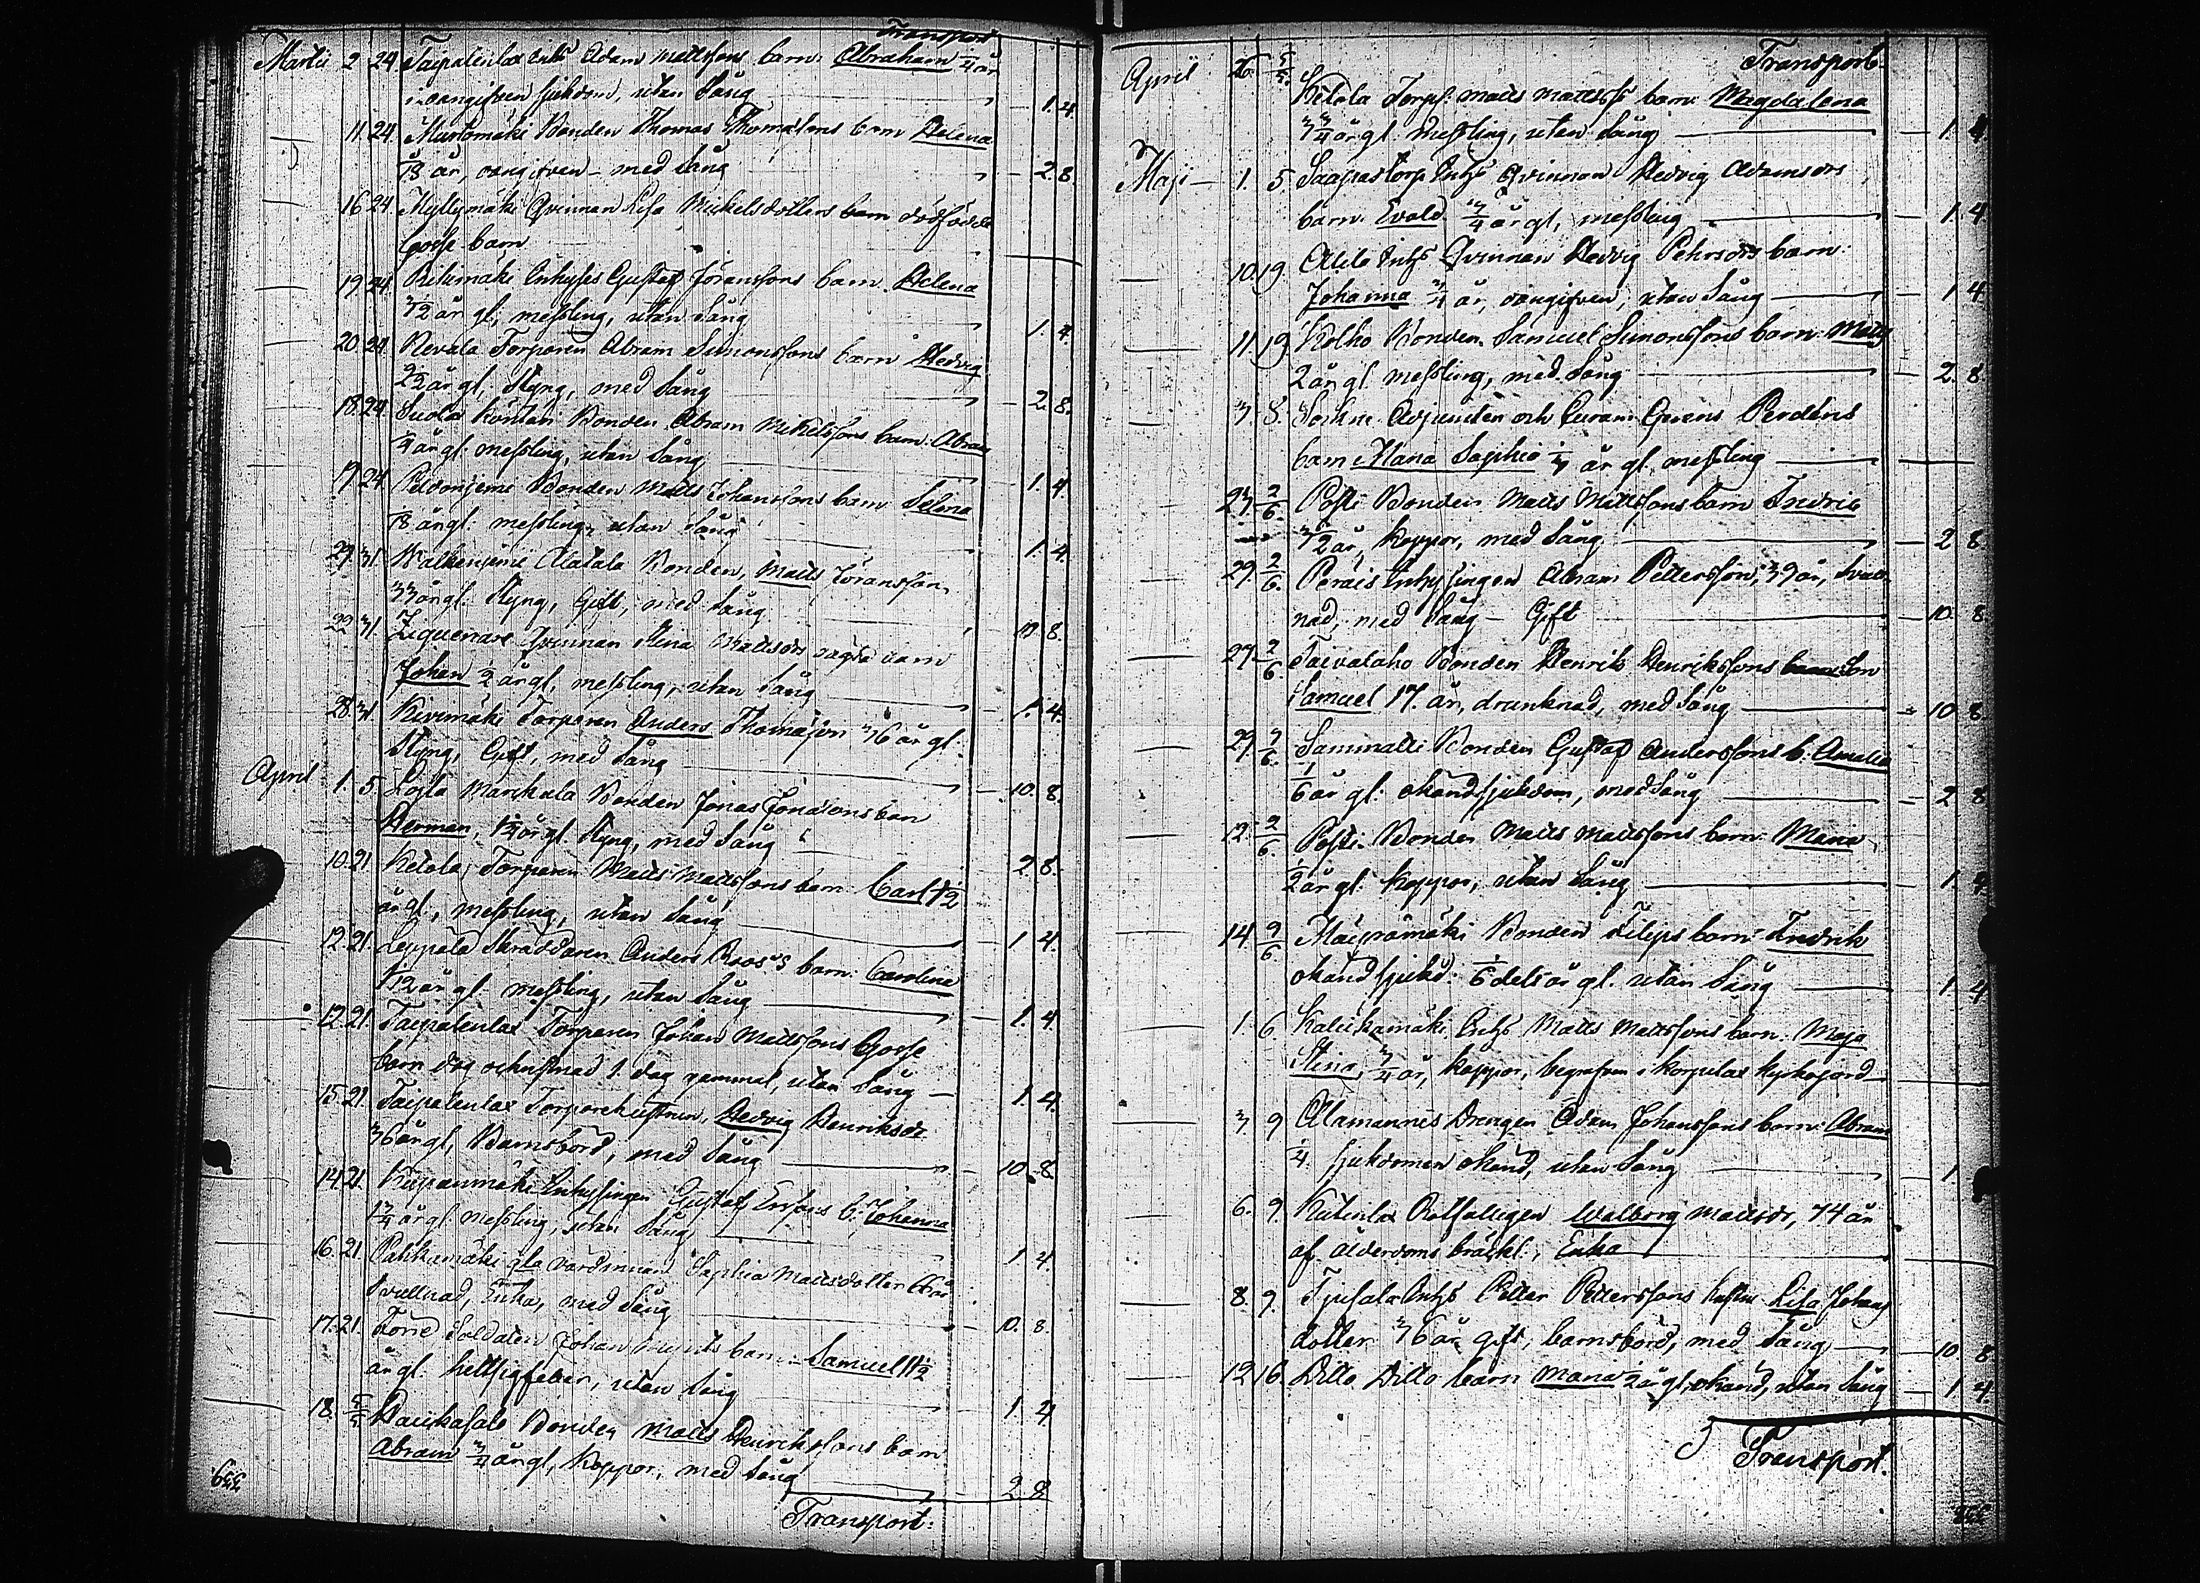 Transport
Martii 2 24 Taipalenlax Inhs Adam Mattssons barn: Abraham 1/4 år
oangifven sjukdom, utan Sång 1. 4
11. 24. Murtomäki Bonden Thomas Thomassons barn Helena
år, oangifven med Sång 2. 8.
16 24 Myllymäki Qvinnan Lisa Mickelsdotters barn dödfödde
gosse barn
19. 24. Inhyses Gustaf Göranssons barn. Helena
år gl, messling, utan Sång 1. 4.
20 24. Nevala Torparen Abram Simonssons barn Hedvig
2 1/2 år gl: Styng, med Sång 2. 8.
18. 24. Bonden Abram Mickelssons barn: Abram
1/4 år gl: messling, utan Sång 1. 4
19 24. Bonden Matts Johanssons barn Selma
år gl. messling, utan Sång 1. 4.
29. 31. Alatalo Bonden, Matts Göransson,
33 år gl. Styng, Gift, med Sång 10. 8.
22. 31. Ziguenare Qvinnan Stina Mattsdrs barn
Johan 1/2 år gl, messling, utan Sång 1. 4.
28. 31. Kivimäki Torparen Anders Thomasson 36 år gl.
Styng, Gift, med Sång 10. 8.
April 1. 5. Markula Bonden Jonas Jonassons barn
Herman, år gl. Styng, med Sång 2. 8.
10. 21. Ketola Torparen Matts Mattssons barn Carl 1 1/2
år gl, messling, utan Sång 1. 4.
12. 21. Leppälä Skräddaren Anders Roos's barn: Carolina
1/12 år gl. messling, utan Sång 1. 4.
12. 21. Taipalenlax Torparen Johan Mattssons Gosse
barn 1. dag gammal, utan Sång 1. 4.
15. 21. Taipalenlax Torparehustrun, Hedvig Henriksdr.
36 år gl, Barnsbörd, med Sång 10. 8.
14. 21. Inhysingen Gustaf Ersons b: Johanna
1 3/4 år gl messling, utan Sång 1 4.
16. 21. Pahkamäki gla värdinnan Sophia Mattsdotter år
Svullnad, Enka, med Sång 10. 8.
17. 21. Soldaten Johan barn: Samuel 1 1/2
år gl. hettsigfeber, utan Sång 1. 4
18. 5/5 Paukasalo Bonden Matts Henrikssons barn
Abram 3/4 år gl, Koppor, med Sång 2. 8
Transport:
339.
Transport.
April 26. 5/5. Ketola Torp. Matts Mattss barn: Magdalena
3 3/4 år gl. messling, utan Sång 1. 4
Maji 1. 5. Saapastorp Inhs Qvinnan Hedvig Adamsdrs
barn: Evald 3/4 år gl, messling 1. 4
10. 19. Inhs Qvinnan Hedvig Pehrsdrs barn:
Johanna 3/4 år, oangifven, utan Sång 1 4
11. 19. Kolho Bonden Samuel Simonssons barn: Matts
2 år gl. messling, med Sång 2. 8.
3. 5. Adjuncten och Curam Gerens Perdéns
barn Maria Sophia år gl. messling
23. 2/6. Posti Bonden Matts Mattssons barn Fredrik
3 1/2 år, koppor, med Sång 2 8
29. 2/6. Peräis Inhysingen Abram Pettersson, 39 år, Svull-
nad, med Sång - Gift 10. 8
27. 2/6. Taivalaho Bonden Henrik Henrikssons son
Samuel 17. år, drunknad, med Sång 10 8.
29. 2/6. Sammatti Bonden Gustaf Anderssons b. Amalia
1/6 år gl: okänd sjukdom, med Sång 2 8
12. 2/6. Posti Bonden Matts Mattssons barn: Maria
1/2 år gl. Koppor, utan Sång 1. 4
14 9/6. Mäenpäämäki Bonden Filips barn: Fredrik
okänd sjukd: 1/6 dels år gl. utan Sång 1. 4
1. 6 Inhs Matts Mattssons barn: Maja
Stina, 3/4 år, koppor, begrafven i Kyrkojord
3. 9 Alamannes Drengen Adam Johanssons barn: Abram
1/4. Sjukdomen okänd, utan Sång 1
6. 9. Rotfattigen Walborg Mattsdr, 74 år
af ålderdoms bräckl., Enka
8. 9. Tjusala Inhs Petter Petterssons hustru Lisa Johans
dotter 36 år gift, barnsbörd, med Sång 10. 8
12 16. Ditto Ditto barn Maria 1/2 år gl, okänd, utan Sång 1. 4.
Transport.